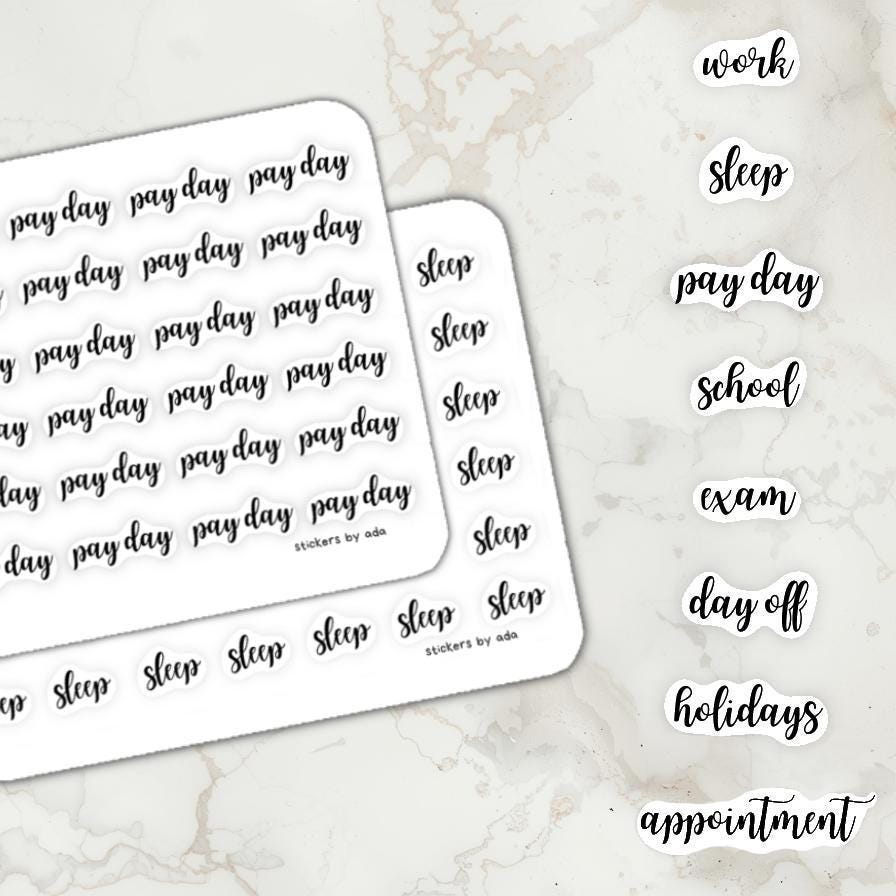 pay day pay day pay day
pay day pay day pay day
pay day pay day pay day
ay pay day pay day pay day
day pay day pay day pay day
day pay day pay day pay day
stickers by ada
sleep
sleep
sleep
sleep
sleep
ep sleep sleep sleep sleep sleep sleep
stickers by ada
work
sleep
pay day
school
exam
day off
holidays
appointment